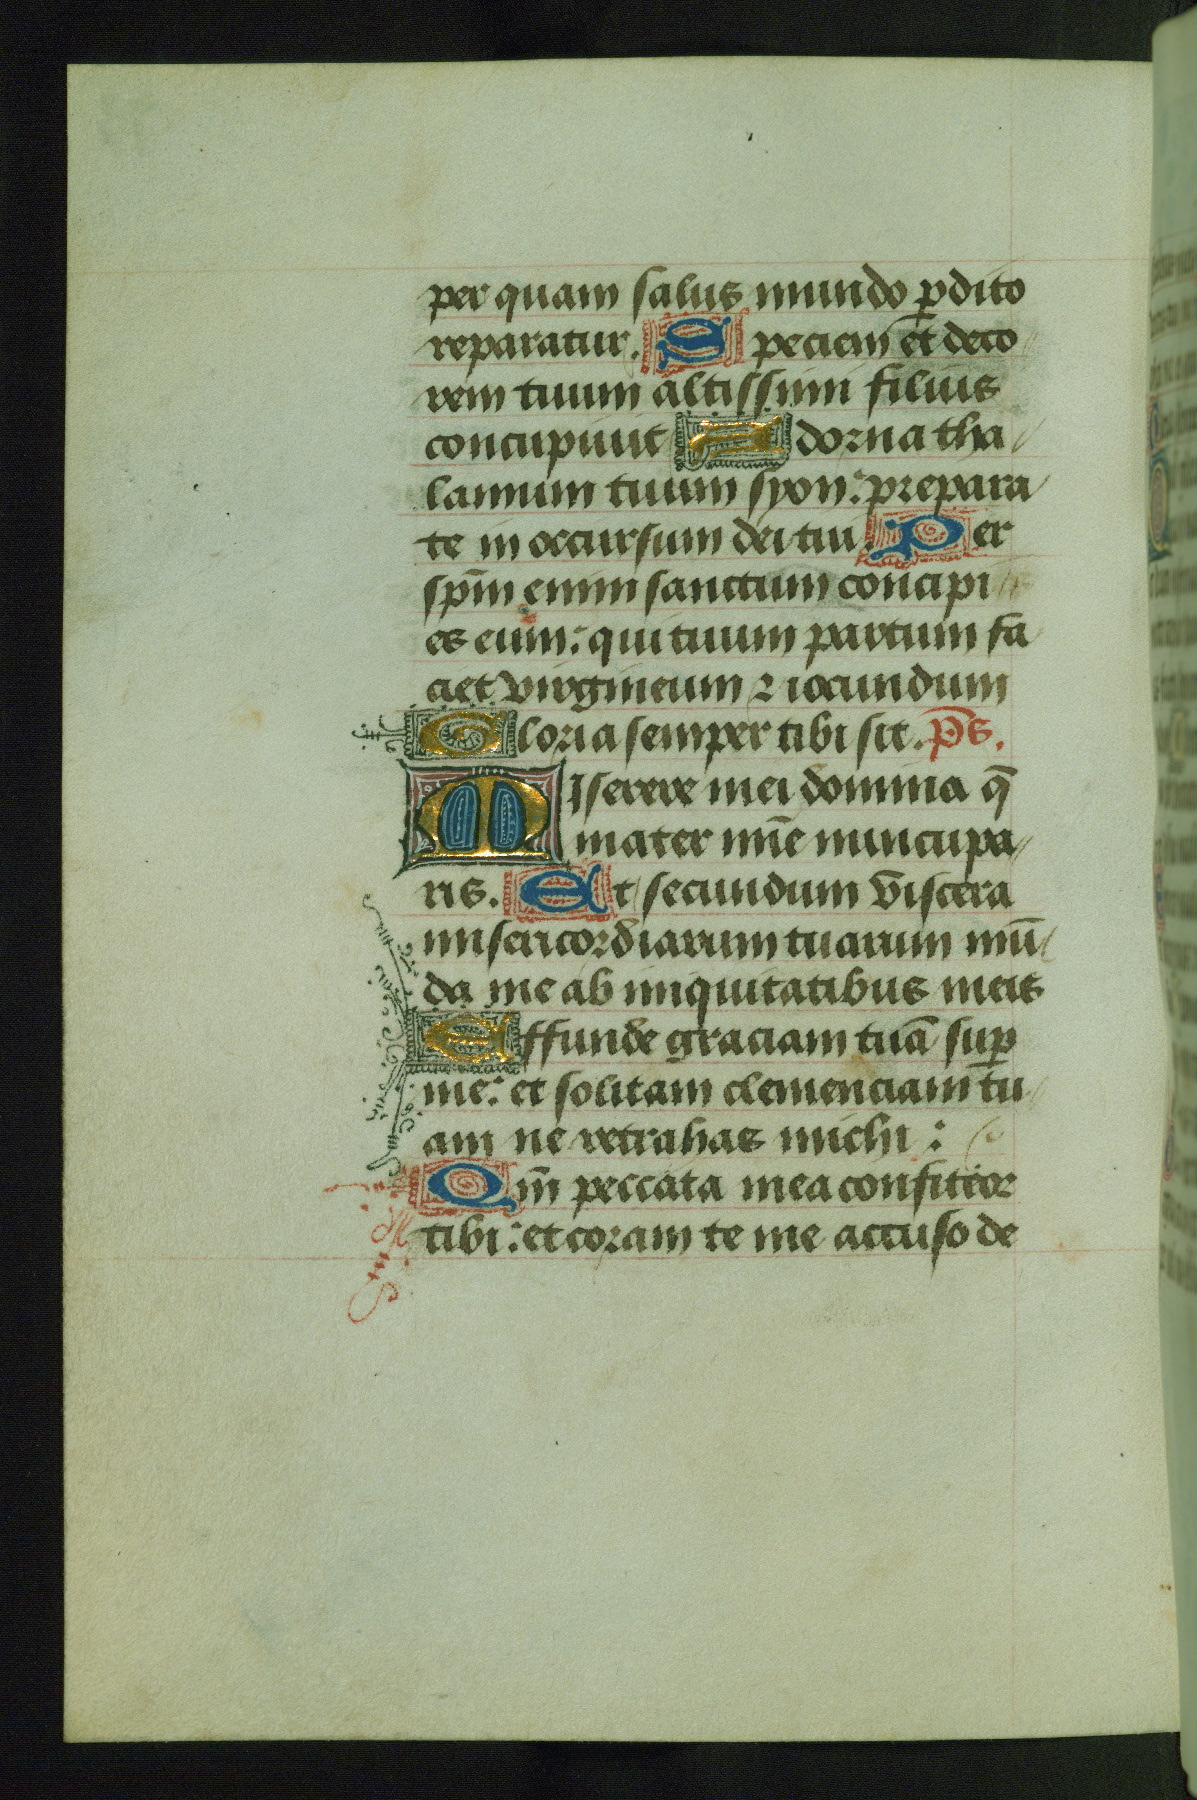 per quam salus mundo p̱dito
reparatur. Speciem et deco
rem tuum altissimi filius
concupiuit Adorna tha
lamum tuum syon: prepara
te in occursum dei tui. Per
sp̄m enim sanctum concipi
es eum: qui tuum partum fa
ciet virgineum ⁊ iocundum
Gloria semper tibi sit. P̄s.
Miserere mei domina q̄
mater mīe nuncupa
ris. Et secundum viscera
misericordiarum tuarum mū
da me ab iniquitatibus meis
Effunde graciam tuā sup̱
me: et solitam clemenciam tu
am ne retrahas michi :
Qm̄ peccata mea confiteor
tibi: et coram te me accuso de